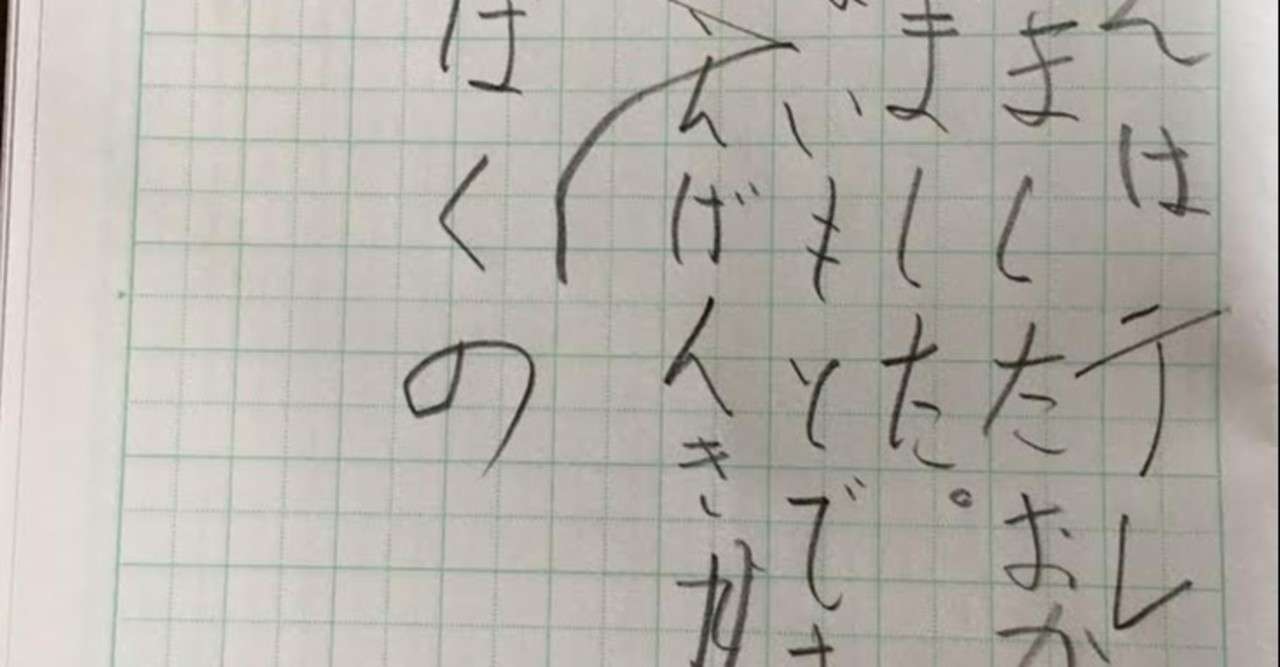 んはテレ
ましたおか
ました。
いもとでさ
んげんきが
はくの